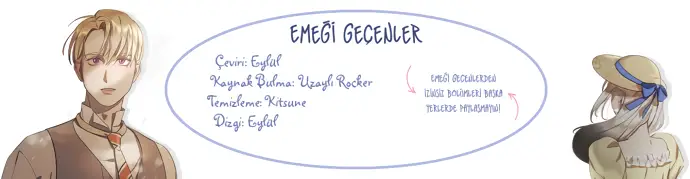 EMEĞİ GEÇENLER
Çeviri: Eylül
Kaynak Bulma: Uzaylı Rocker
Temizleme: Kitsune
Dizgi: Eylül
EMEĞİ GEÇENLERDEN
İZİNSİZ BÖLÜMLERİ BAŞKA
YERLERDE PAYLAŞMAYIN!